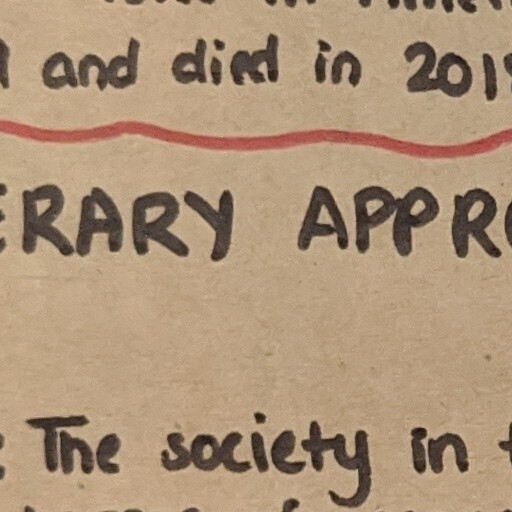 and died in 201
ERARY APPR
The society in